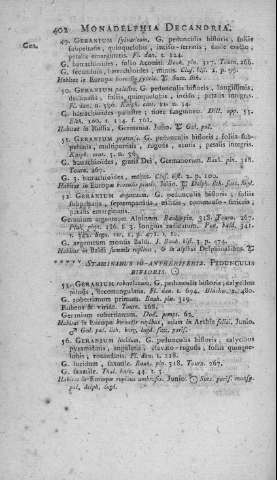 402 MONADELPHIA DECANDRIA.
Ger. 49. GERANIUM sylvaticum. G. pedunculis bifloris, foliis
subpeltatis, quinquelobis, inciso-serratis, caule erecto,
petalis emarginatis. Fl. dan. t. 124.
G. batrachioides, folio Aconiti. Bauh. pin. 317. Tourn. 266.
G. batrachioides, minus. Clus. hist. 2. p. 99.
Habitat in Europae
50. GERANIUM palustre. G. pedunculis bifloris, longissimis,
declinatis, foliis, quinquelobis, incisis, petalis integris.
Fl. dan. t. 596.
G. batrachioides palustre, Dill.
Elth. 160. t. 134. f. 161.
Habitat in Russia, Germania. Julio.
51. GERANIUM pratense. G. pedunculis bifloris, foliis sub-
peltatis, multipartitis, rugosis, acutis, petalis integris.
G. batrachioides, gratia Dei, Germanorum. Bauh. pin. 318.
Tourn. 267.
G. 3. batrachioides, majus. Clus. hist. 2. p. 100.
Habitat in Europae borealis pratis. Julio.
52. GERANIUM argenteum. G. pedunculis bifloris, foliis
subpeltatis, septempartitis, trifidis, tomentoso-sericeis,
petalis emarginatis.
Geranium argenteum Alpinum. Bauh. pin. 318. Tourn. 267.
G. argenteum montis Baldi. J. Bauh. hist. 3. p. 474.
Habitat in Baldi
***** STAMINIBUS 10-ANTHERIFERIS. PEDUNCULIS
BIFLORIS.
55. GERANIUM robertianum. G. pedunculis bifloris, calycibus
pilosis, decemangulatis. Fl. dan. t. 694. 480.
G. robertianum primum. Bauh. pin. 319.
Rubens & viride. Tourn. 268.
Geranium robertianum. Dod. pempt. 62.
Habitat in Europae borealis rupibus, Junio.
56. GERANIUM lucidum. G. pedunculis bifloris, calycibus
pyramidatis, angulatis, elevato-rugosis, foliis quinque-
lobis, rotundatis. Fl. dan. t. 218.
G. lucidum, saxatile. Bauh. pin. 318. Tourn. 267.
G. saxatile. Thal. herc. 44. t. 5.
Habitat in Europae rupibus umbrosis. Junio.